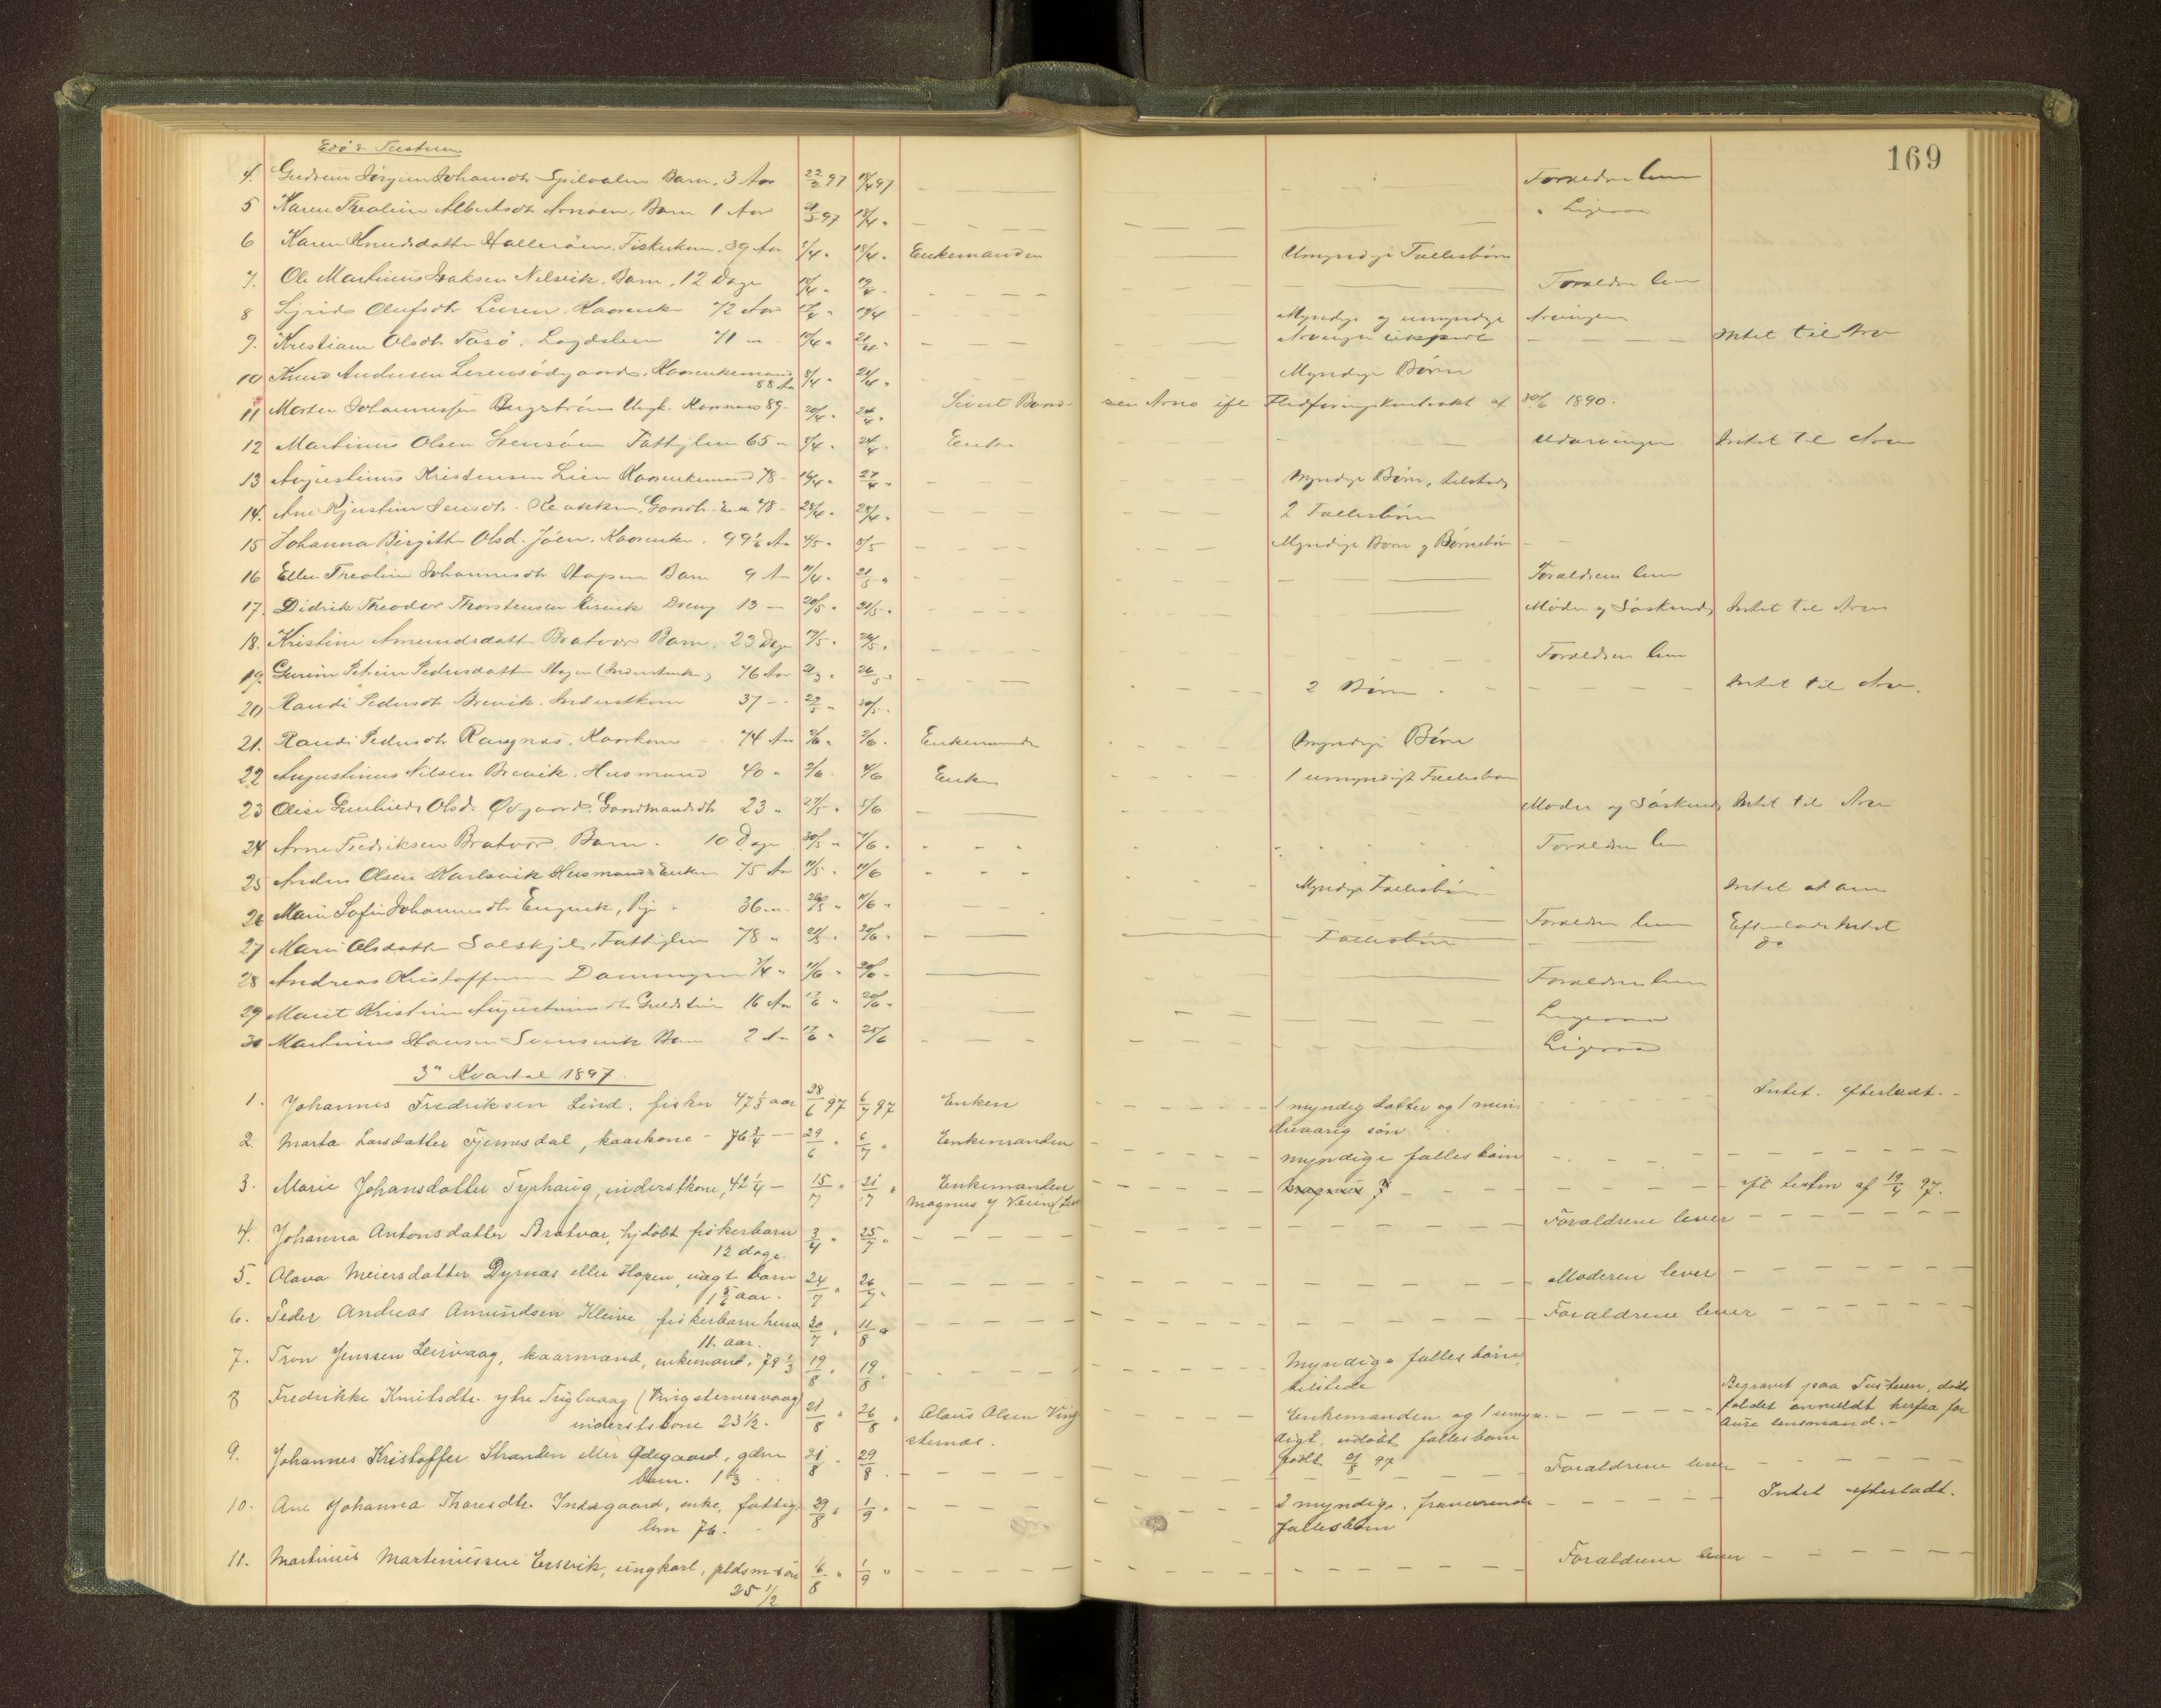 169
Edö & Tustern
4. Gudrun Jörgine Johansdtr Spilvalen Barn. 3 Aar 22/2 97 18/4 97 Forældrene leve
5 Karen Theoline Albertsdtr Arnöen, Barn 1 Aar 97 18/4 " " Ligesaa
6 Karen Knudsdatter Halleröien, Fiskerkone. 39 Aar /4 " 18/4 " Enkemanden Umyndige Fællesbörn
7. Ole Martinius Isaksen Nelvik, Barn, 12 Dage /4 " Forældrene leve
8 Sigrid Olufsdtr Leiren, Kaarenke 72 Aar 19/4 Myndige og umyndige Arvinger
9. Kristiane Olsdtr Tusö, Lægdslem 71 " /4 " 21/4 " Arvinger Intet til Arv
10 Knud Andersen Lerensödegaard, Kaarenkemand 88 Aar 8/4 " 24/4 " Myndige Börn
11 Morten Johannessen Bergström Ungk. Kaarmand 89 - 20/4 " 24/4 " Sivert sen Arnö ifl Flodföringskontrakt af 30/6 1890.
12 Martinus Olsen Stensöen Fattiglem 65 " /4 " 24/4 " Enke Udarvinger Intet til Arv
13 Augustinus Kristensen Lien Kaarenkemand 78 - 16/4 " 27/4 " Myndige Börn, tilstede
14. Ane Kjerstine Jensdtr. Gaardb. Enke 78 - 23/4 " 28/4 " 2 Fællesbörn
15 Johanna Birgitte Olsd. Jöen, Kaarenke. 99½ Aar 4/5 " 5/5 Myndige Börn og Börnebörn
16 Ellen Theoline Johannesdtr Hopen Barn 9 Aar /4 " 21/5 " Forældrene leve
17. Didrik Theodor Thorstensen Dreng 13 - 20/5 " 21/5 " Moder og Söskende Intet til Arv
18. Kristine Amundsdatter Bratvær Barn, 23 Dage 19/5 " 24/5 " Forældrene leve
19. Gurine Petrine Pedersdatter (Inderstenke) 76 Aar " 26/5 " 2 Börn Intet til Arv.
20 Randi Pedersdtr Brevik. Inderstkone 37 - 22/5 " 30/5 "
21. Randi Pedersdtr Rangnes, Kaarkone 74 Aar 2/6 " 3/6 " Enkemanden Myndige Börn
22 Augustinus Nilsen Brevik, Husmand 40 " 2/6 " 4/6 Enken 1 umyndigt Fællesbarn
23 Olise Gunhild Olsd. Ødgaard. Gaardmandsdtr 23 " 27/5 " 5/6 Moder og Söskende Intet til Arv
24 Arne Fredriksen Bratvær Barn. 10 Dage 30/5 " 7/6 " Forældrene leve
25 Anders Olsen Karlsvik Husmands Enkem 75 Aar 11/5 " 11/6 Myndige Fællesbörn Intet at arve
26 Marie Sofie Johannesdtr Engvik, Pige 36 " 26/5 " 11/6 " Forældrene leve Efterlader Intet
27 Marie Olsdatter Solskjel, Fattiglem 78 " 21/5 " 20/6 " Fællesbörn do
28 Andreas Kristoffersen Dromnessund 3/4 " 11/6 " 20/6 " Forældrene leve
29 Marit Kristine Augustinusdtr Guldstein 16 Aar 17/6 " 20/6 " Ligesaa
30 Martinius Hansen Svensvik Barn 2 A 17/6 " 25/6 Ligesaa
3die Kvartal 1897.
1. Johannes Fredriksen Lind. fisker 47⅓ aar 28/6 97 6/7 97 Enken 1 myndig datter og 1 min- Intet efterladt. -
dreaarig sön
2. Marta Larsdatter Fjernesdal, kaarkone - 76¾ - 29/6 " 6/7 " Enkemanden myndige fællesbörn
3. Marie Johansdatter Tyrhaug, inderstkone, 42¼ - 15/7 " 21/7 " Enkemanden ifl. testm af 19/4 97.
Magnus J Veien
4. Johanna Antonsdatter Bratvær, hjdöbt fiskerbarn 3/4 " 25/7 " Forældrene lever
12 dage.
5. Olava Meiersdatter Dyrnæs eller Hopen, uægt barn 24/7 " 26/7 " Moderen lever
1⅚ aar.
6. Peder Andreas Amundsen Kleive fiskerbarn 30/7 " 11/8 " Forældrene lever
11 aar.
7. Tron Jenssen Leirvaag, kaarmand, enkemand, 79⅓ 19/8 " 19/8 " Myndige fællesbörn,
tilstede
8 Fredrikke Knutsdtr. ytre Tuglvaag (Vingsternesvaag) 21/8 " 26/8 " Claus Olsen Ving- Enkemanden og 1 umyn- Begravet paa Tustern, döds
inderstkone 23½. sternes. digt, udöbt fællesbarn faldet anmeldt herfra for
födt /8 97 Aure lensmand. -
9. Johannes Kristoffer Stranden eller Ødegaard, gdm 21/8 " 29/8 " Forældrene lever
barn. 1⅓
10. Ane Johanna Tharesdtr. Indergaard, enke, fattig- 29/8 " 1/9 " 2 myndige, fraværende Intet efterladt.
lem 76. fællesbörn
11. Martinus Martiniussen Ersvik, ungkarl, pldsm sön 6/8 " 1/9 " Forældrene lever
25½